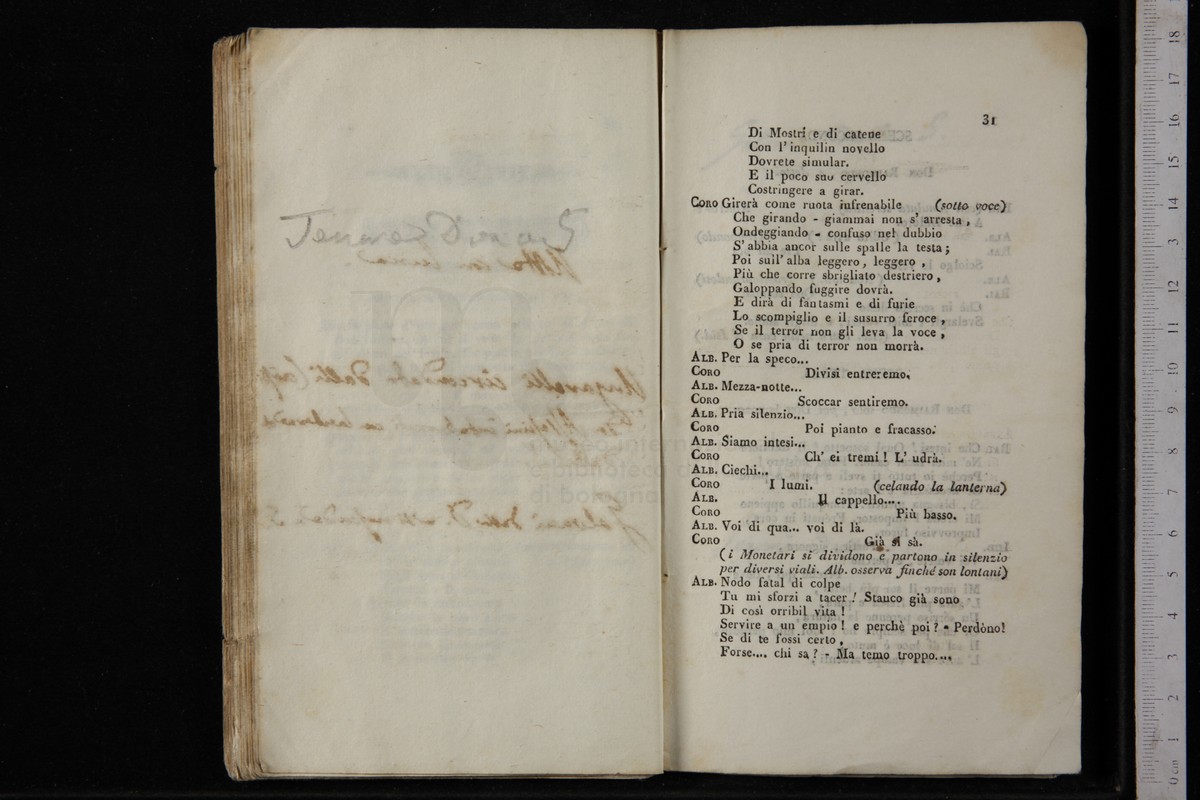 31
Di Mostri e di catene
Con l' inquilin novello
Dovrete simular.
E il poco suo cervello
Costringere a girar.
CORO Girerà come ruota infrenabile (sotto voce)
Che girando - giammai non s' arresta,
Ondeggiando - confuso nel dubbio
S' abbia ancor sulle spalle la testa;
Poi sull' alba leggero, leggero,
Più che corre sbrigliato destriero,
Galoppando fuggire dovrà.
E dirà di fantasmi e di furie
Lo scompiglio e il susurro feroce,
Se il terror non gli leva la voce,
O se pria di terror non morrà.
ALB. Per la speco...
CORO Divisi entreremo.
ALB. Mezza-notte...
CORO Scoccar sentiremo.
ALB. Pria silenzio...
CORO Poi pianto e fracasso.
ALB. Siamo intesi...
CORO Ch' ei tremi! L' udrà.
ALB. Ciechi...
CORO I lumi. (celando la lanterna)
ALB. Il cappello....
CORO Più basso.
ALB. Voi di qua... voi di là.
CORO Già si sà.
(i Monetari si dividono e partono in silenzio
per diversi viali. Alb. osserva finché son lontani)
ALB. Nodo fatal di colpe
Tu mi sforzi a tacer! Stanco già sono
Di così orribil vita!
Servire a un empio! e perchè poi? - Perdòno!
Se di te fossi certo,
Forse.... chi sa? - Ma temo troppo....